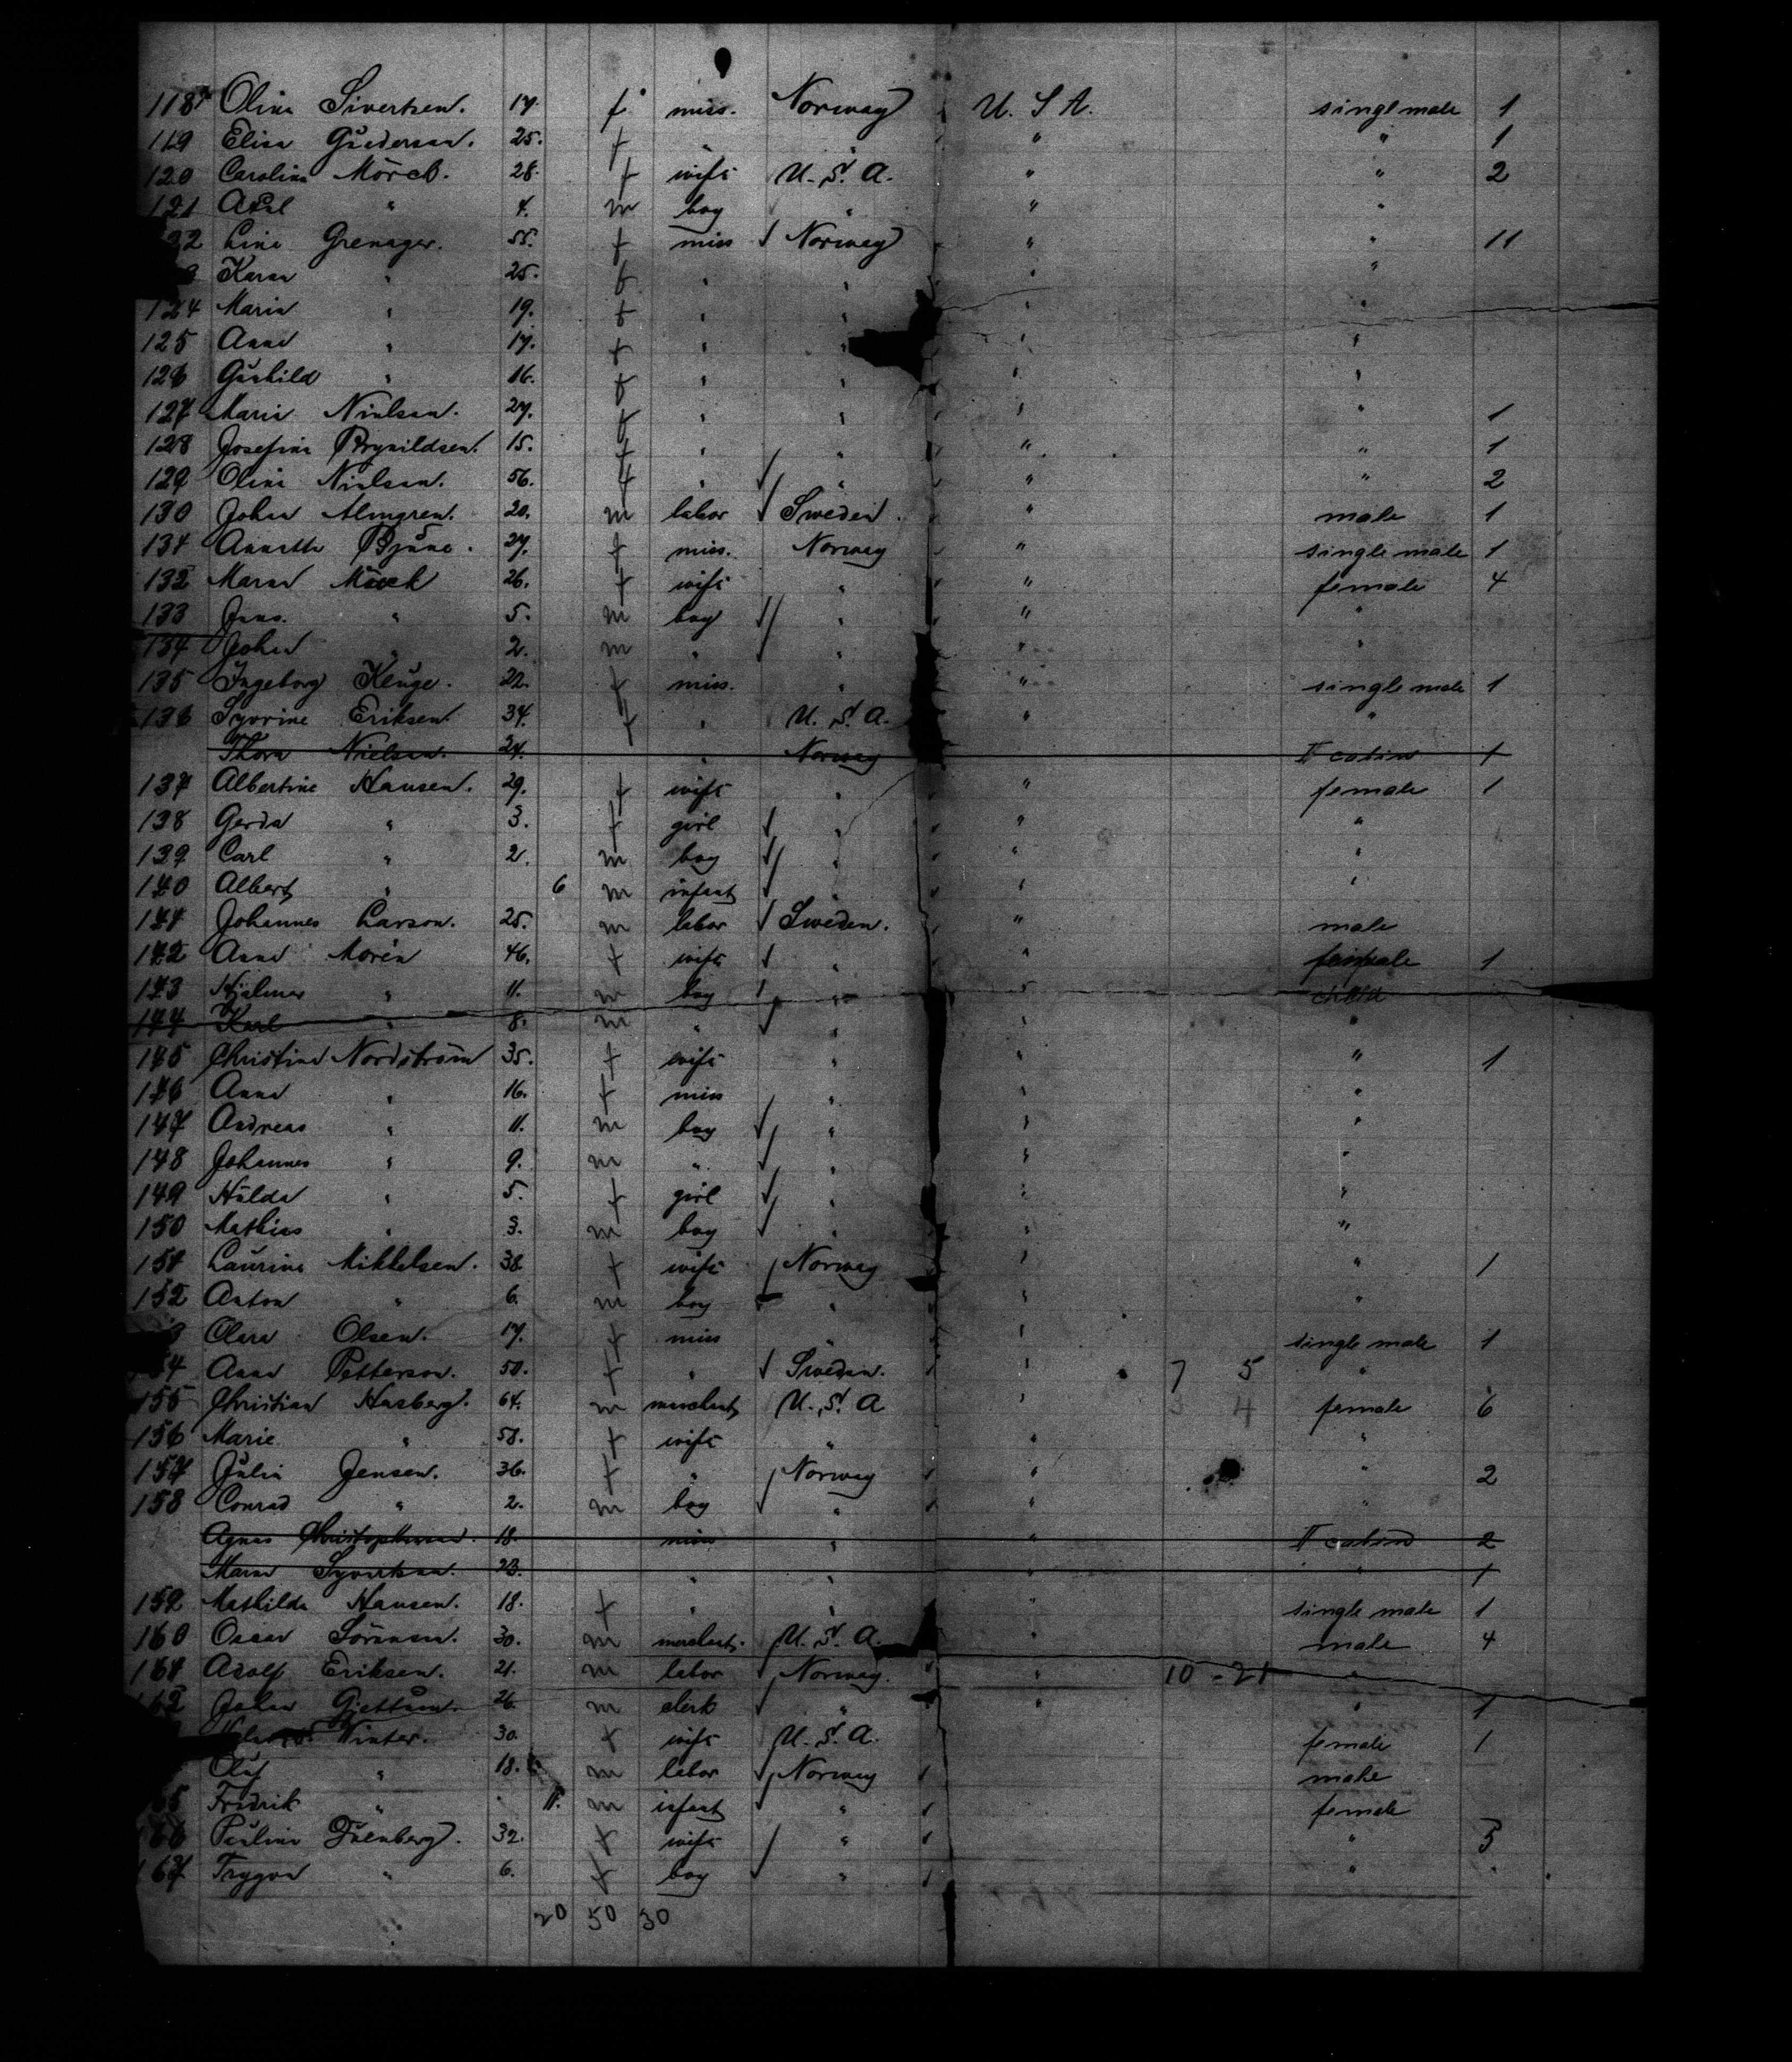 118 Olina Sivertsen. 17. f miss. Norway U. S A. singl male 1
119 Elisa Gudersen. 25. f " " " 1
120 Carolina Mörch. 28. f wife U. S. A. " " 2
121 Axel " 4. m boy " " "
22 Lina Grenager. 55. f miss Norway " " 11
Karen " 25. f " " " "
124 Marie " 19. f " " " "
125 Anna " 17. f " " " "
126 Gunhild " 16. f " " " "
127 Marie Nielsen. 27. f " " " " 1
128 Josefine Brynildsen. 15. f " " " " 1
129 Oline Nielsen. 56. f " " " " 2
130 Johan Almgren. 20. m labor Sweden. " male 1
131 Annette Bjune. 27. f miss. Norway " single male 1
132 Maren Mörch 26. f wife " " female 4
133 Jens. " 5. m boy " " "
134 Johan " 2. m " " " "
135 Ingeborg Kluge. 22. f miss. " " single male 1
136 Syvrine Eriksen. 34. f " U. S. A. " "
Thora Nielsen. 24. " Norway II cabin 1
137 Albertine Hansen. 29. f wife " " female 1
138 Gerda " 3. f girl " " "
139 Carl " 2. m boy " " "
140 Albert " 6 m infant " " "
141 Johannes Larson. 25. m labor Sweden. " male
142 Anna Morén 46. f wife " " female 1
143 Hjalmar " 11. m boy " " child
144 Karl " 8. m " " " "
145 Christina Nordström 35. f wife " " " 1
146 Anna " 16. f miss " " "
147 Andreas " 11. m boy " " "
148 Johannes " 9. m " " " "
149 Hulda " 5. f girl " " "
150 Mathias " 3. m boy " " "
151 Laurine Mikkelsen. 38 f wife Norway " " 1
152 Anton " 6. m boy " " "
3 Clara Olsen. 17. f miss " " single male 1
54 Anna Petterson. 50. f " Sweden. " 7 5 "
155 Christian Hasberg. 64. m merchant U. S. A " 4 female 6
156 Marie " 58. f wife " " "
157 Julia Jensen. 36. f " Norway " " 2
158 Conrad " 2. m boy " " "
Agnes Christophersen. 18. miss " " II cabin 2
Maren Syvertsen. 23. " " " " 1
159 Mathilde Hansen. 18. f " " " single male 1
160 Oscar Sörensen. 30. m merchant. U. S. A. " male 4
161 Adolf Eriksen. 21. m labor Norway. " 10 - 21 "
162 26. m clerk " " " 1
Winter. 30. f wife U. S. A. female 1
Oluf " 18. m labor Norway male
65 Fredrik " 11. m infant " female
66 Pauline 32. f wife " " 5
167 Trygve " 6. f boy " "
20 50 30